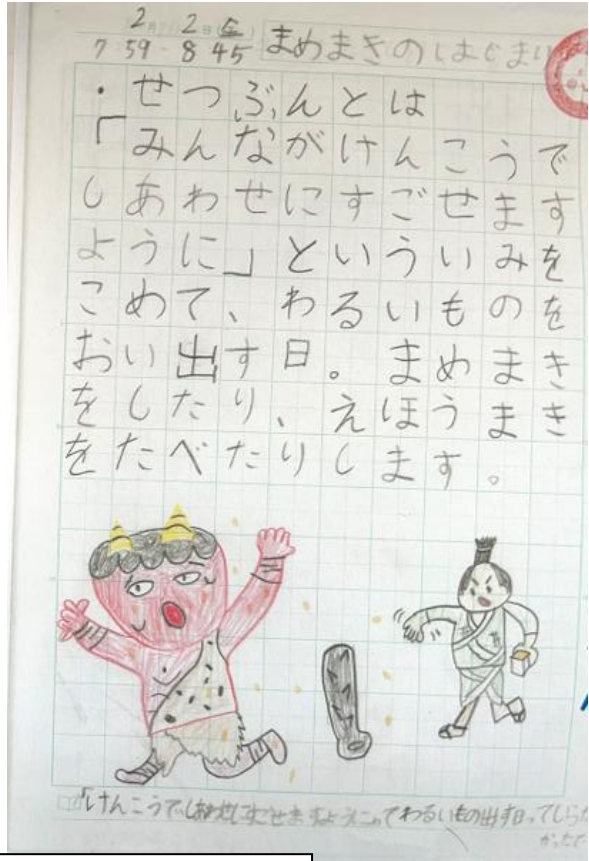 2月 2日(金)
7:59-8:45 まめまきのはじまり
・せつぶんとは
「みんながけんこうで
しあわせにすごせます
ように」といういみを
こめて、わるいものを
おい出す日。まめまき
をしたり、えほうまき
をたべたりします。
「けんこうでしあわせにすごせますようにってわるいもの出す日ってしらな
かったで